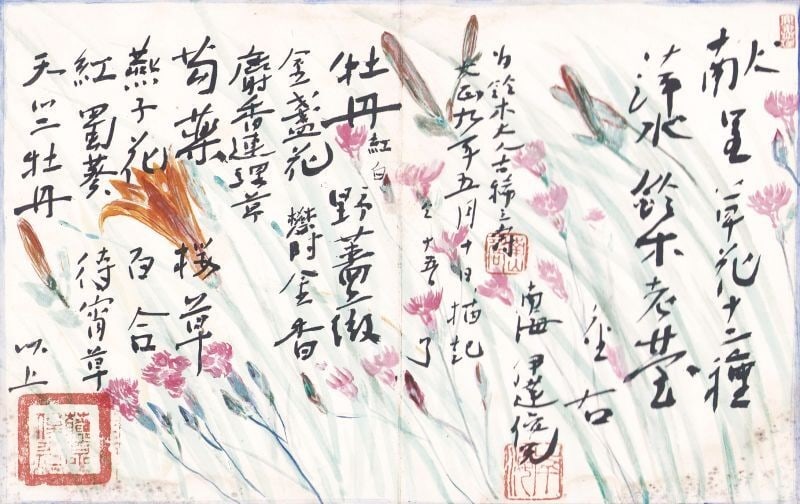 献呈草花十二種
萍水鈴木老台
座右
為鈴木大人古稀之寿
大正九年五月十日描起
仝十五日了
南海 伊達俊光
牡丹 紅白 野薔薇
金盞花 欝金香
麝香連理草
芍薬 桜草
燕子花 百合
紅蜀葵 待宵草
天竺牡丹 以上